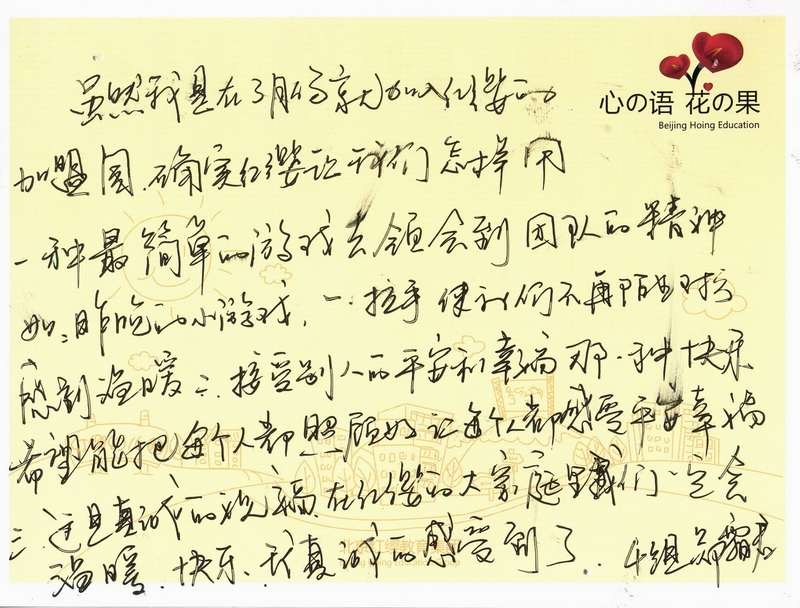 心の语 花の果
Beijing Hoing Education
虽然我是在3月份就加入红缨的
加盟园,确实红缨让我们怎样用
一种最简单的游戏去领会到团队的精神
如:昨晚的小游戏,一.拉手使我们不再陌生对方
感到温暖二.接受别人的平安和幸福那一种快乐
希望能把每个人都照顾好让每个人都感受平安幸福
三.这是真诚的祝福.在红缨的大家庭里我们一定会
温暖.快乐、我真诚的感受到了.4组